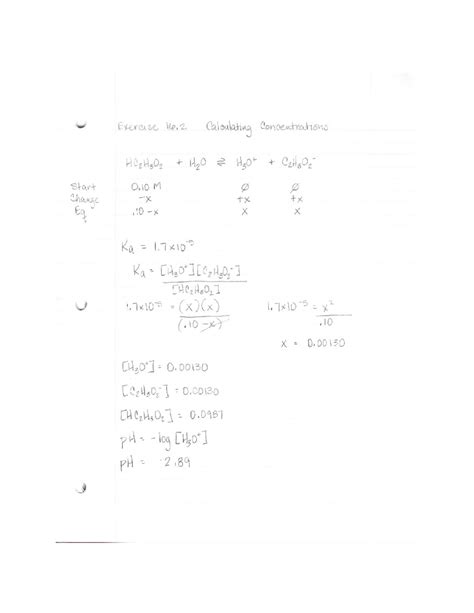 Exercise 16.2 Calculating Concentrations
HC₂H₃O₂ + H₂O ⇌ H₃O⁺ + C₂H₃O₂⁻
Start 0.10 M ∅ ∅
Change -x +x +x
Eq .10-x x x
Ka = 1.7×10⁻⁵
Ka = [H₃O⁺][C₂H₃O₂⁻]
[HC₂H₃O₂]
1.7×10⁻⁵ = (x)(x) 1.7×10⁻⁵ = x²
(.10-x) .10
x = 0.00130
[H₃O⁺] = 0.00130
[C₂H₃O₂⁻] = 0.00130
[HC₂H₃O₂] = 0.0987
pH = -log [H₃O⁺]
pH = 2.89